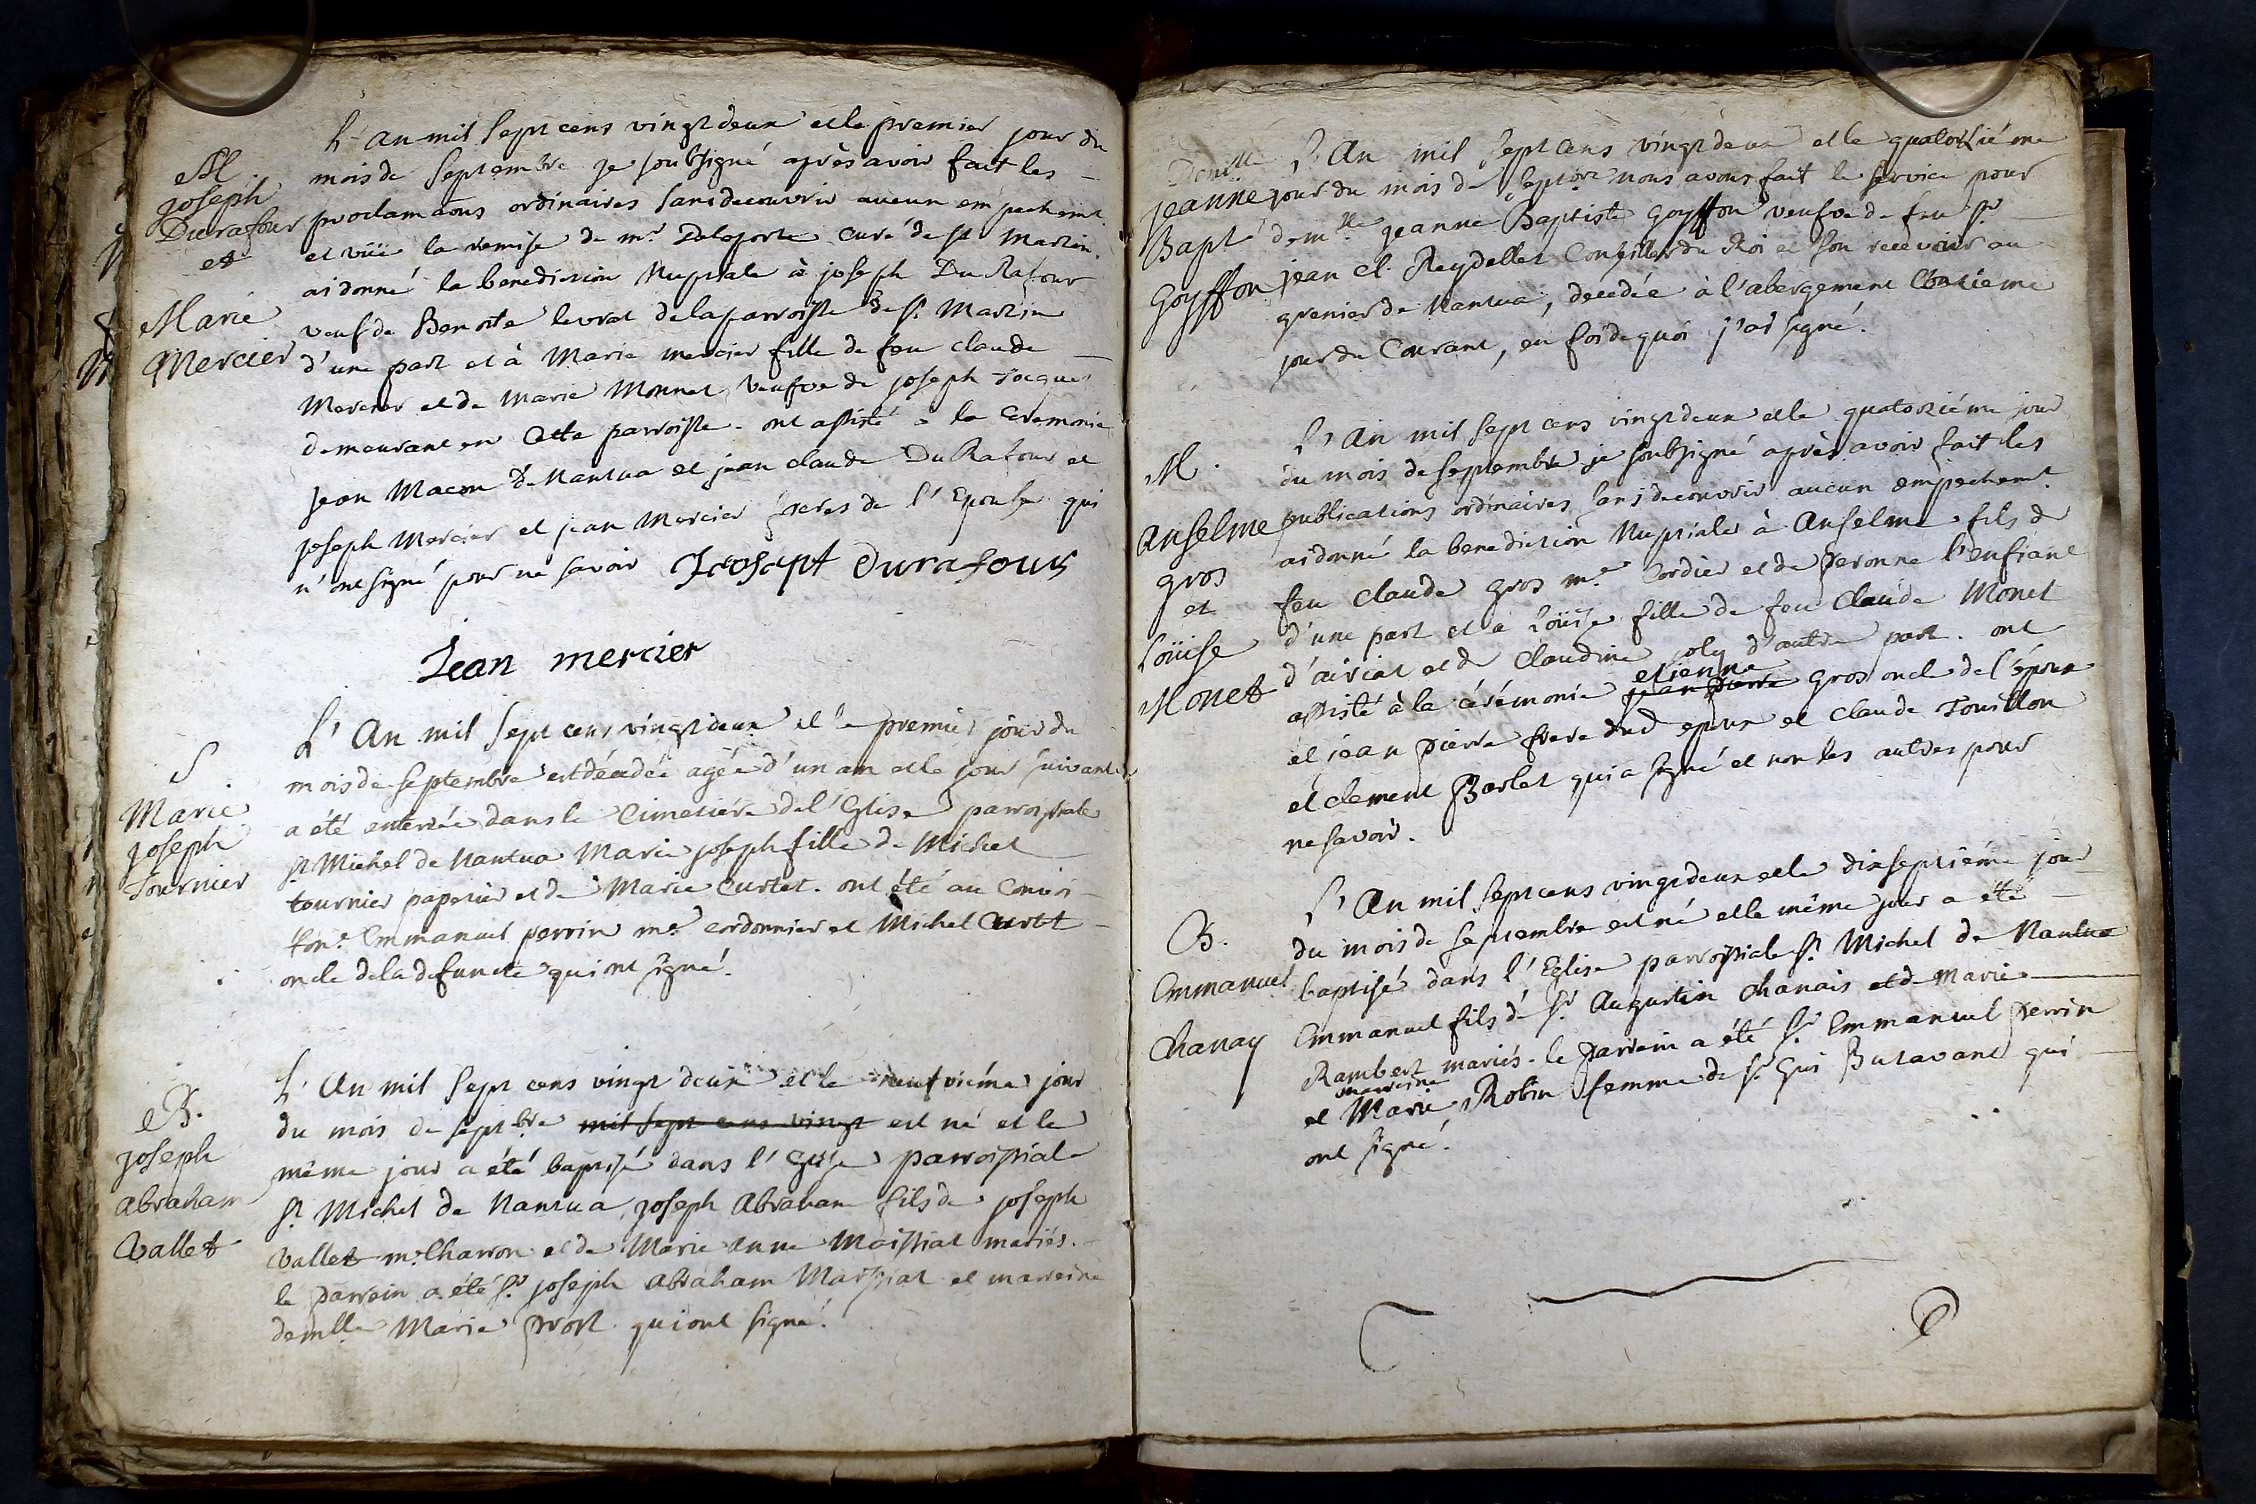 M
joseph
Durafour
et
Marie
Mercier
L'an mil sept cens vingt deux et le premier jour du
mois de septembre je soubsigné après avoir fait les
proclamaons ordinaires sans decouvrir aucun empechemt
et vüe la remise de mr Delaporte curé de st Martin
ai donné la benediction Nuptiale à joseph Du Rafour
veuf de Benoite levrat de la parroisse de st Martin
d'une part et à Marie mercier fille de feu claude
Mercier et de Marie Monnet veufve de joseph
demeurant en cette parroisse. ont assisté a la ceremonie
jean Macon de Nantua et jean claude Du Rafour et
joseph Mercier et jean Mercier freres de l'Epouse qui
n'ont signé pour ne savoir Jeosept Durafour
Jean mercier
S
Marie
joseph
Tournier
L'An mil sept cens vingt deux et le premier jour du
mois de septembre est décédée agée d'un an et le jour suivant
a été enterrée dans le Cimetiére de l'Eglise parroissiale
st Michel de Nantua Marie joseph fille de Michel
tournier papetier et de Marie Curtet. ont été au Convoi
hon. Emmanuel perrin me cordonnier et Michel Curtet
oncle de la defuncte qui ont signé.
B.
joseph
abraham
Vallet
L'An mil sept cens vingt deux et le neufviéme jour
du mois de septbre mil sept cens vingt est né et le
même jour a été baptisé dans l'Eglise parroissiale
st Michel de Nantua joseph Abraham fils de joseph
Vallet me Charron et de Marie Anne Maissiat mariés.
le parrein a été sr joseph abraham Maissiat et marreine
demlle Marie prost qui ont signé.
Demlle
jeanne
Bapte
Goyffon
L'An mil sept cens vingt deux et le quatorziéme
jour du mois de septbre nous avons fait le service pour
demlle jeanne Baptiste goyffon veufve de feu sr
jean cl. Reydellet Conseiller du Roi et son receveur au
grenier de Nantua, decedée à l'abergement l'onziéme
jour du Courant, en foi de quoi j'ai signé.
M.
Anselme
gros
et
Loüise
Monet
L'An mil sept cens vingt deux et le quatorziéme jour
du mois de septembre je soubsigné après avoir fait les
publications ordinaires sans decouvrir aucun empechemt
ai donné la benediction Nuptiale à Anselme fils de
feu claude gros me Cordier et de peronne l'enfiant
d'une part et à Loüise fille de feu Claude Monet
d'airiat et de Claudine joly d'autre part. ont
assisté à la cérémonie jean pierre etienne gros oncle de l'époux
et jean pierre frere dud epoux et claude Touillon
et clement Barlet qui a signé et non les autres pour
ne savoir.
B.
Emmanuel
Chanay
L'An mil sept cens vingt deux et le dixseptiéme jour
du mois de septembre est né et le même jour a été
baptisé dans l'Eglise parroissiale st Michel de Nantua
Emmanuel fils de sr Augustin chanais et de Marie
Rambert mariés. le parrein a été sr Emmanuel perrin
et marreine Marie Robin femme de sr Gui Butavant qui
ont signé.